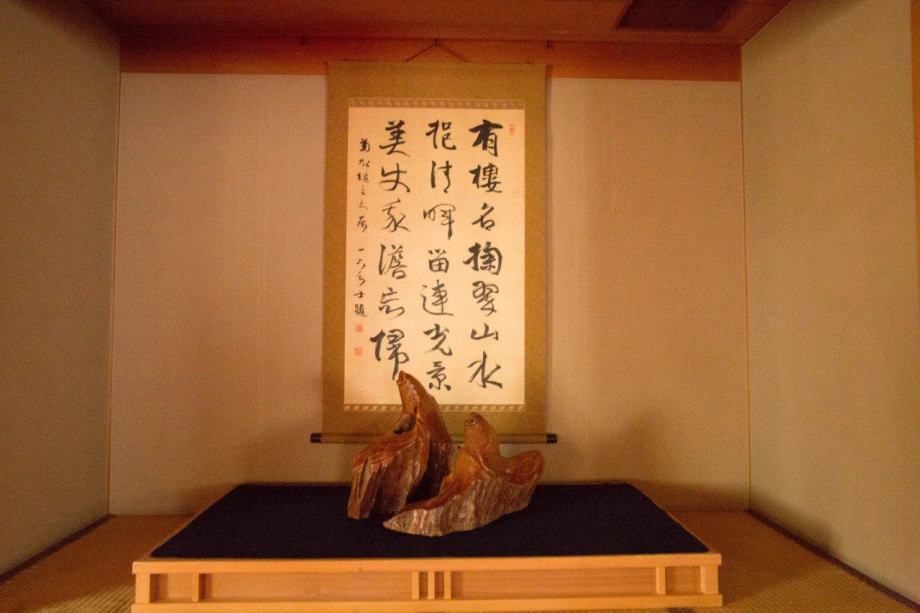 有樓名掬翠山水
挹清暉留連光景
美使我澹忘帰
菊水樓主人属 一六居士題